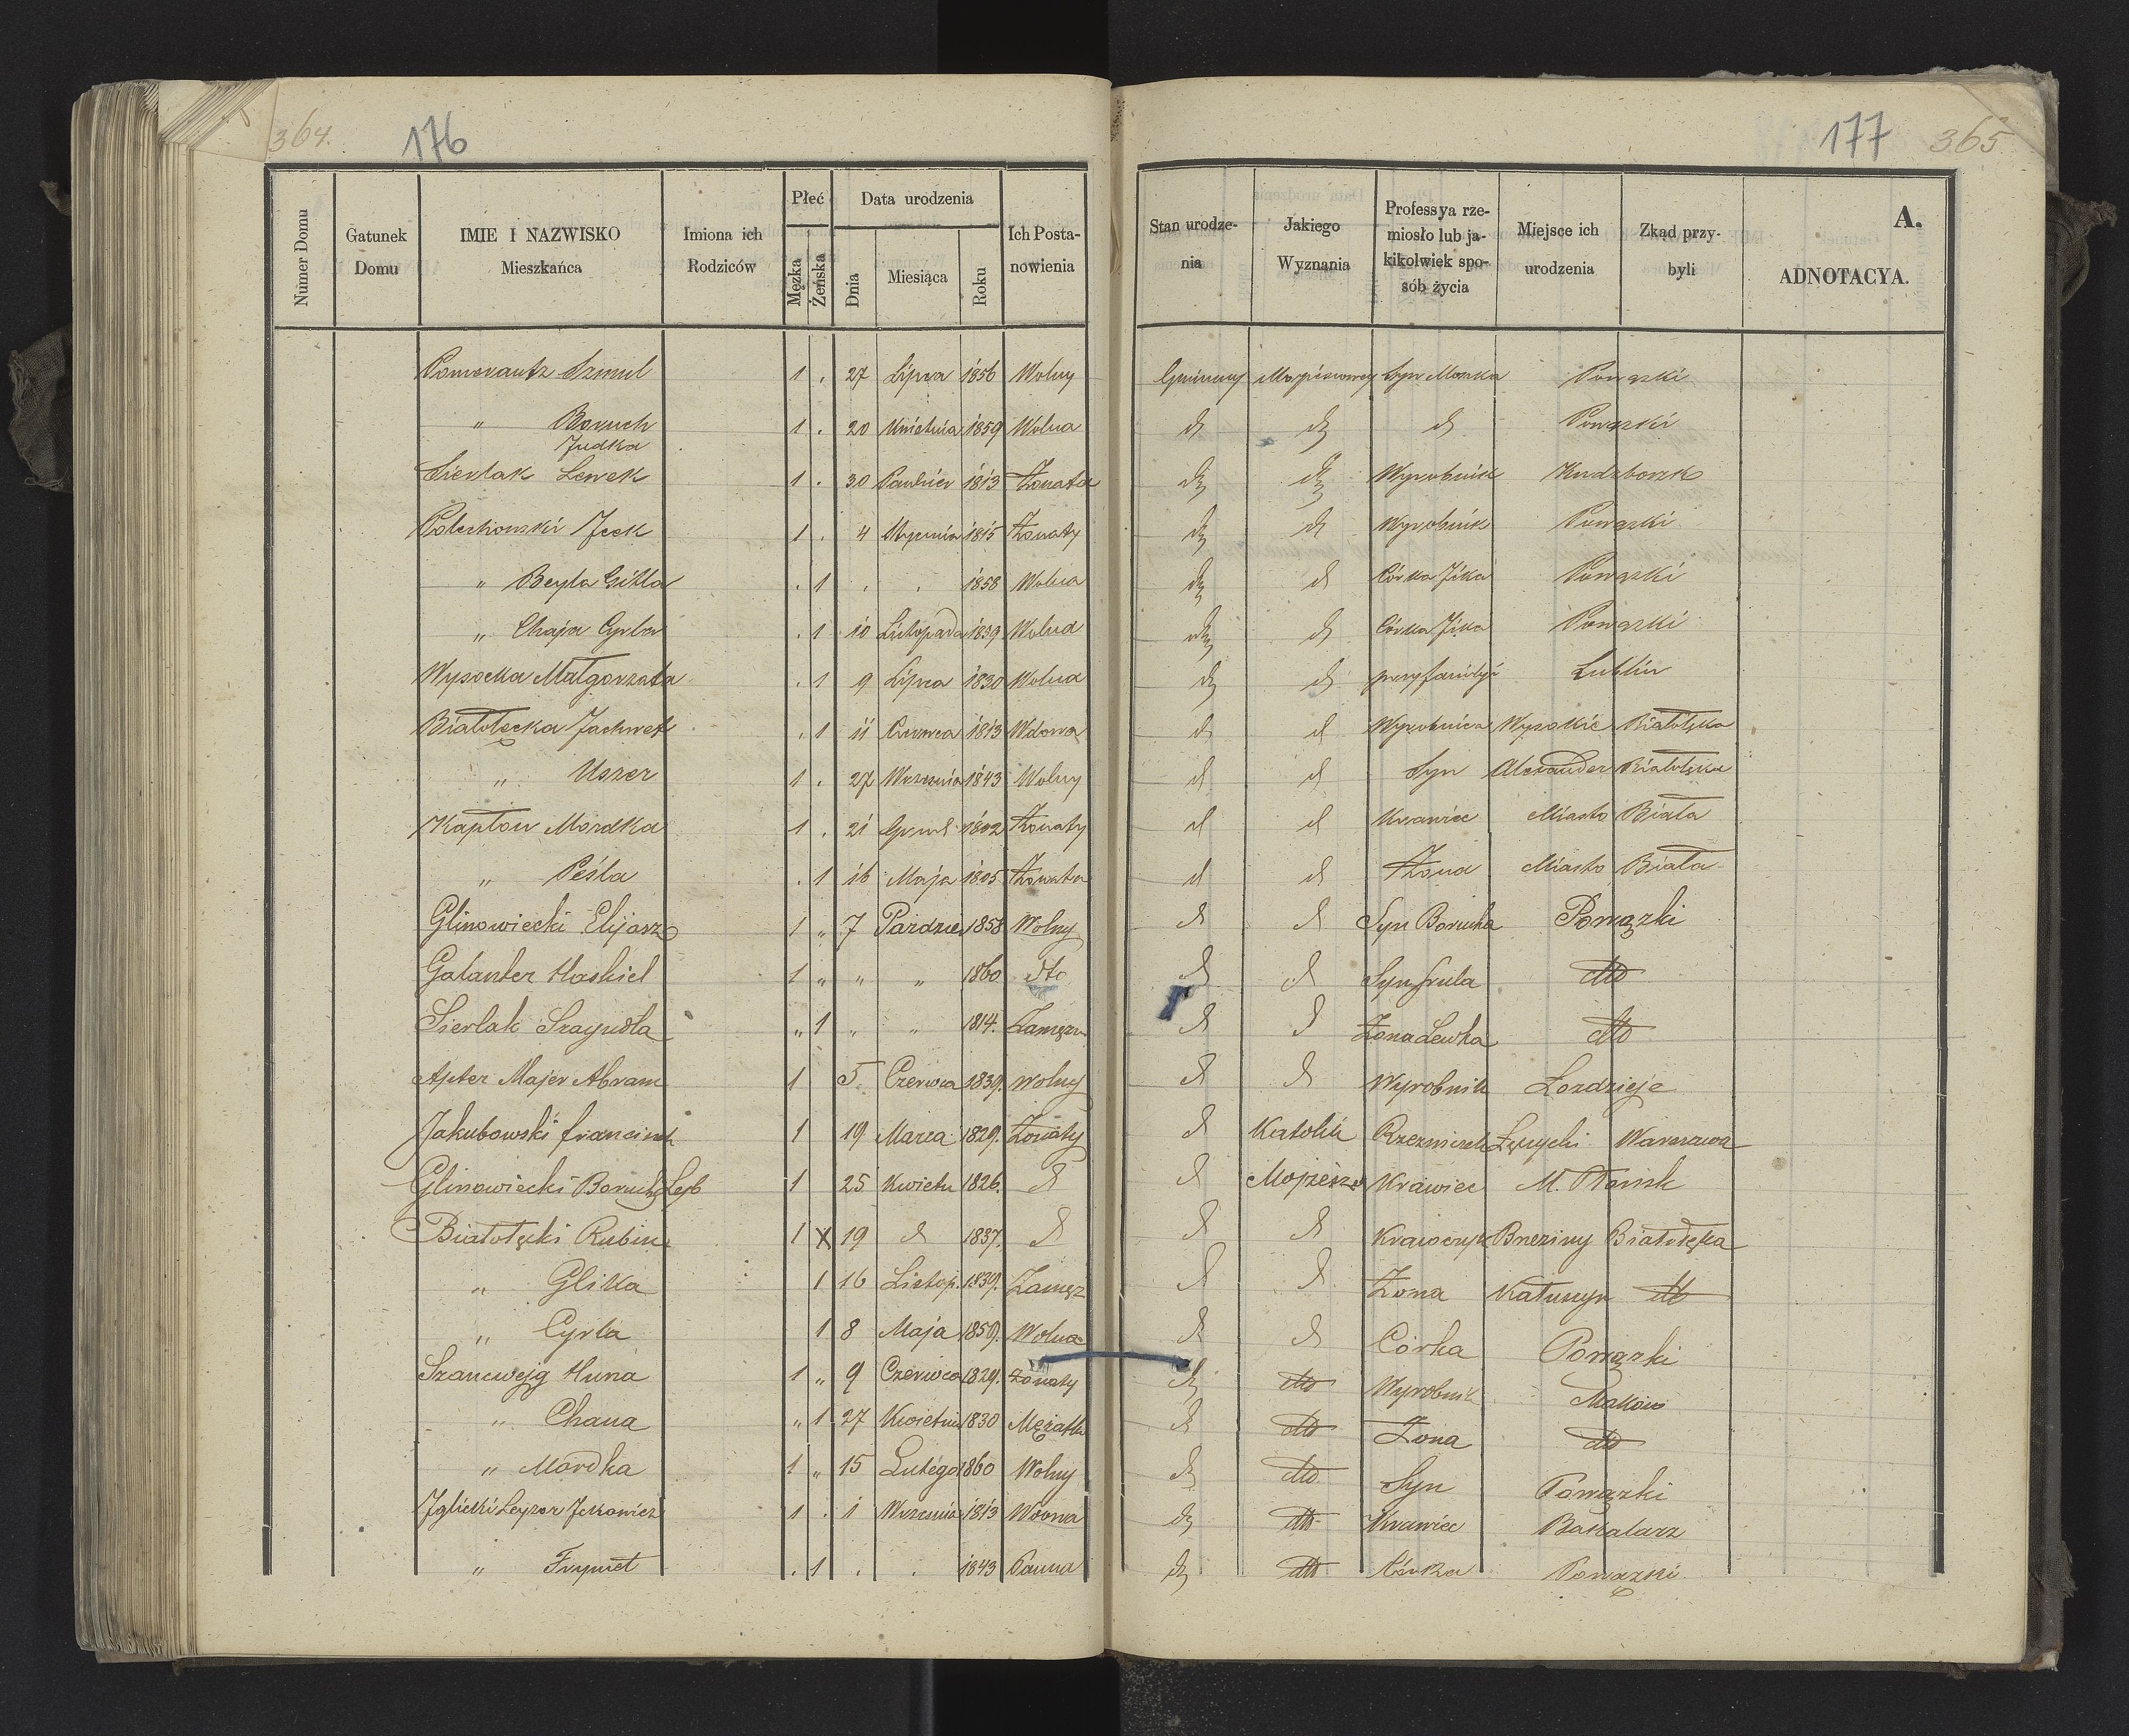 364.
176
Numer Domu
Gatunek Domu
IMIE I NAZWISKO Mieszkańca
Imiona ich Rodziców
Płeć
Męzka
Żeńska
Data urodzenia
Dnia
Miesiąca
Roku
Ich Postanowienia
177
365
Stan urodzenia
Jakiego Wyznania
Professya rzemiosło lub jakikolwiek sposób życia
Miejsce ich urodzenia
Zkąd przybyli
A.
ADNOTACYA.
Pomorantz Szmul 1 . 27 Lipca 1856 Wolny Gminny Syn Moszka Powązki
" Boruch Judka 1 . 20 Kwietnia 1859 Wolna d d d Powązki
Sierlak Lewek 1 . 30 1813 Żonata d d Wyrobnik
Jcek 1 . 4 Stycznia 1815 Żonaty d d Wyrobnik Powązki
" Beyla Gitla . 1 . . 1858 Wolna d d Córka Jcka Powązki
" Chaja Cyrla . 1 10 Listopada 1859 Wolna d d Córka Jcka Powązki
Wysocka Małgorzata . 1 9 Lipca 1830 Wolna d d przy familji Lublin
Białołęcka Jachwet . 1 11 Czerwca 1813 Wdowa d d Wyrobnica Wysokie Białołęka
" Uszer 1 . 27 Września 1843 Wolny d d Syn Alexander Białołęka
Kapłon Mordka 1 . 21 Grud. 1802 Żonaty d d Krawiec Miasto Biała
" Peśla . 1 16 Maja 1805 Żonata d d Żona Miasto Biała
Glinowiecki Elijasz 1 " 7 Paździer 1858 Wolny d d Syn Borucha Powązki
Galanter Haskiel 1 " " " 1860 dto d d Syn Srula dto
Sierlak Szayndla " 1 " " 1814. Zamężn. d d Żona Lewka dto
Apter Majer Abram 1 5. Czerwca 1839. wolny d d Wyrobnik Łozdzieje
Jakubowski francisek 1 19 Marca 1829. Żonaty d Katolik Rzeźniczek Łęczycki Warszawa
Glinowiecki Boruch Leyb 1 25 Kwietn 1826. d d Mojżesz. Krawiec M. Płońsk
Białołęcki Rubin 1 X 19 d 1837. d d d Krawczyk Brzeziny Białołęka
" Glika 1 16 Listop. 1839. Zamęż d d Żona Kałuszyn dto
" Cyrla 1 8 Maja 1859. Wolna d d Córka Powązki
Szancwejg Huna 1 " 9 Czerwca 1829. Żonaty d dto Wyrobnik Maków
" Chana " 1 27 Kwietnia 1830 Mężatka d dto Żona dto
" Mordka 1 " 15 Lutego 1860 Wolny d dto Syn Powązki
Jglicki Leyzor Jckowicz 1 . 1 Września 1813 Wdowa d dto Krawiec Bakalarz
" Frymet . 1 . . 1843 Panna d dto Córka Powązki